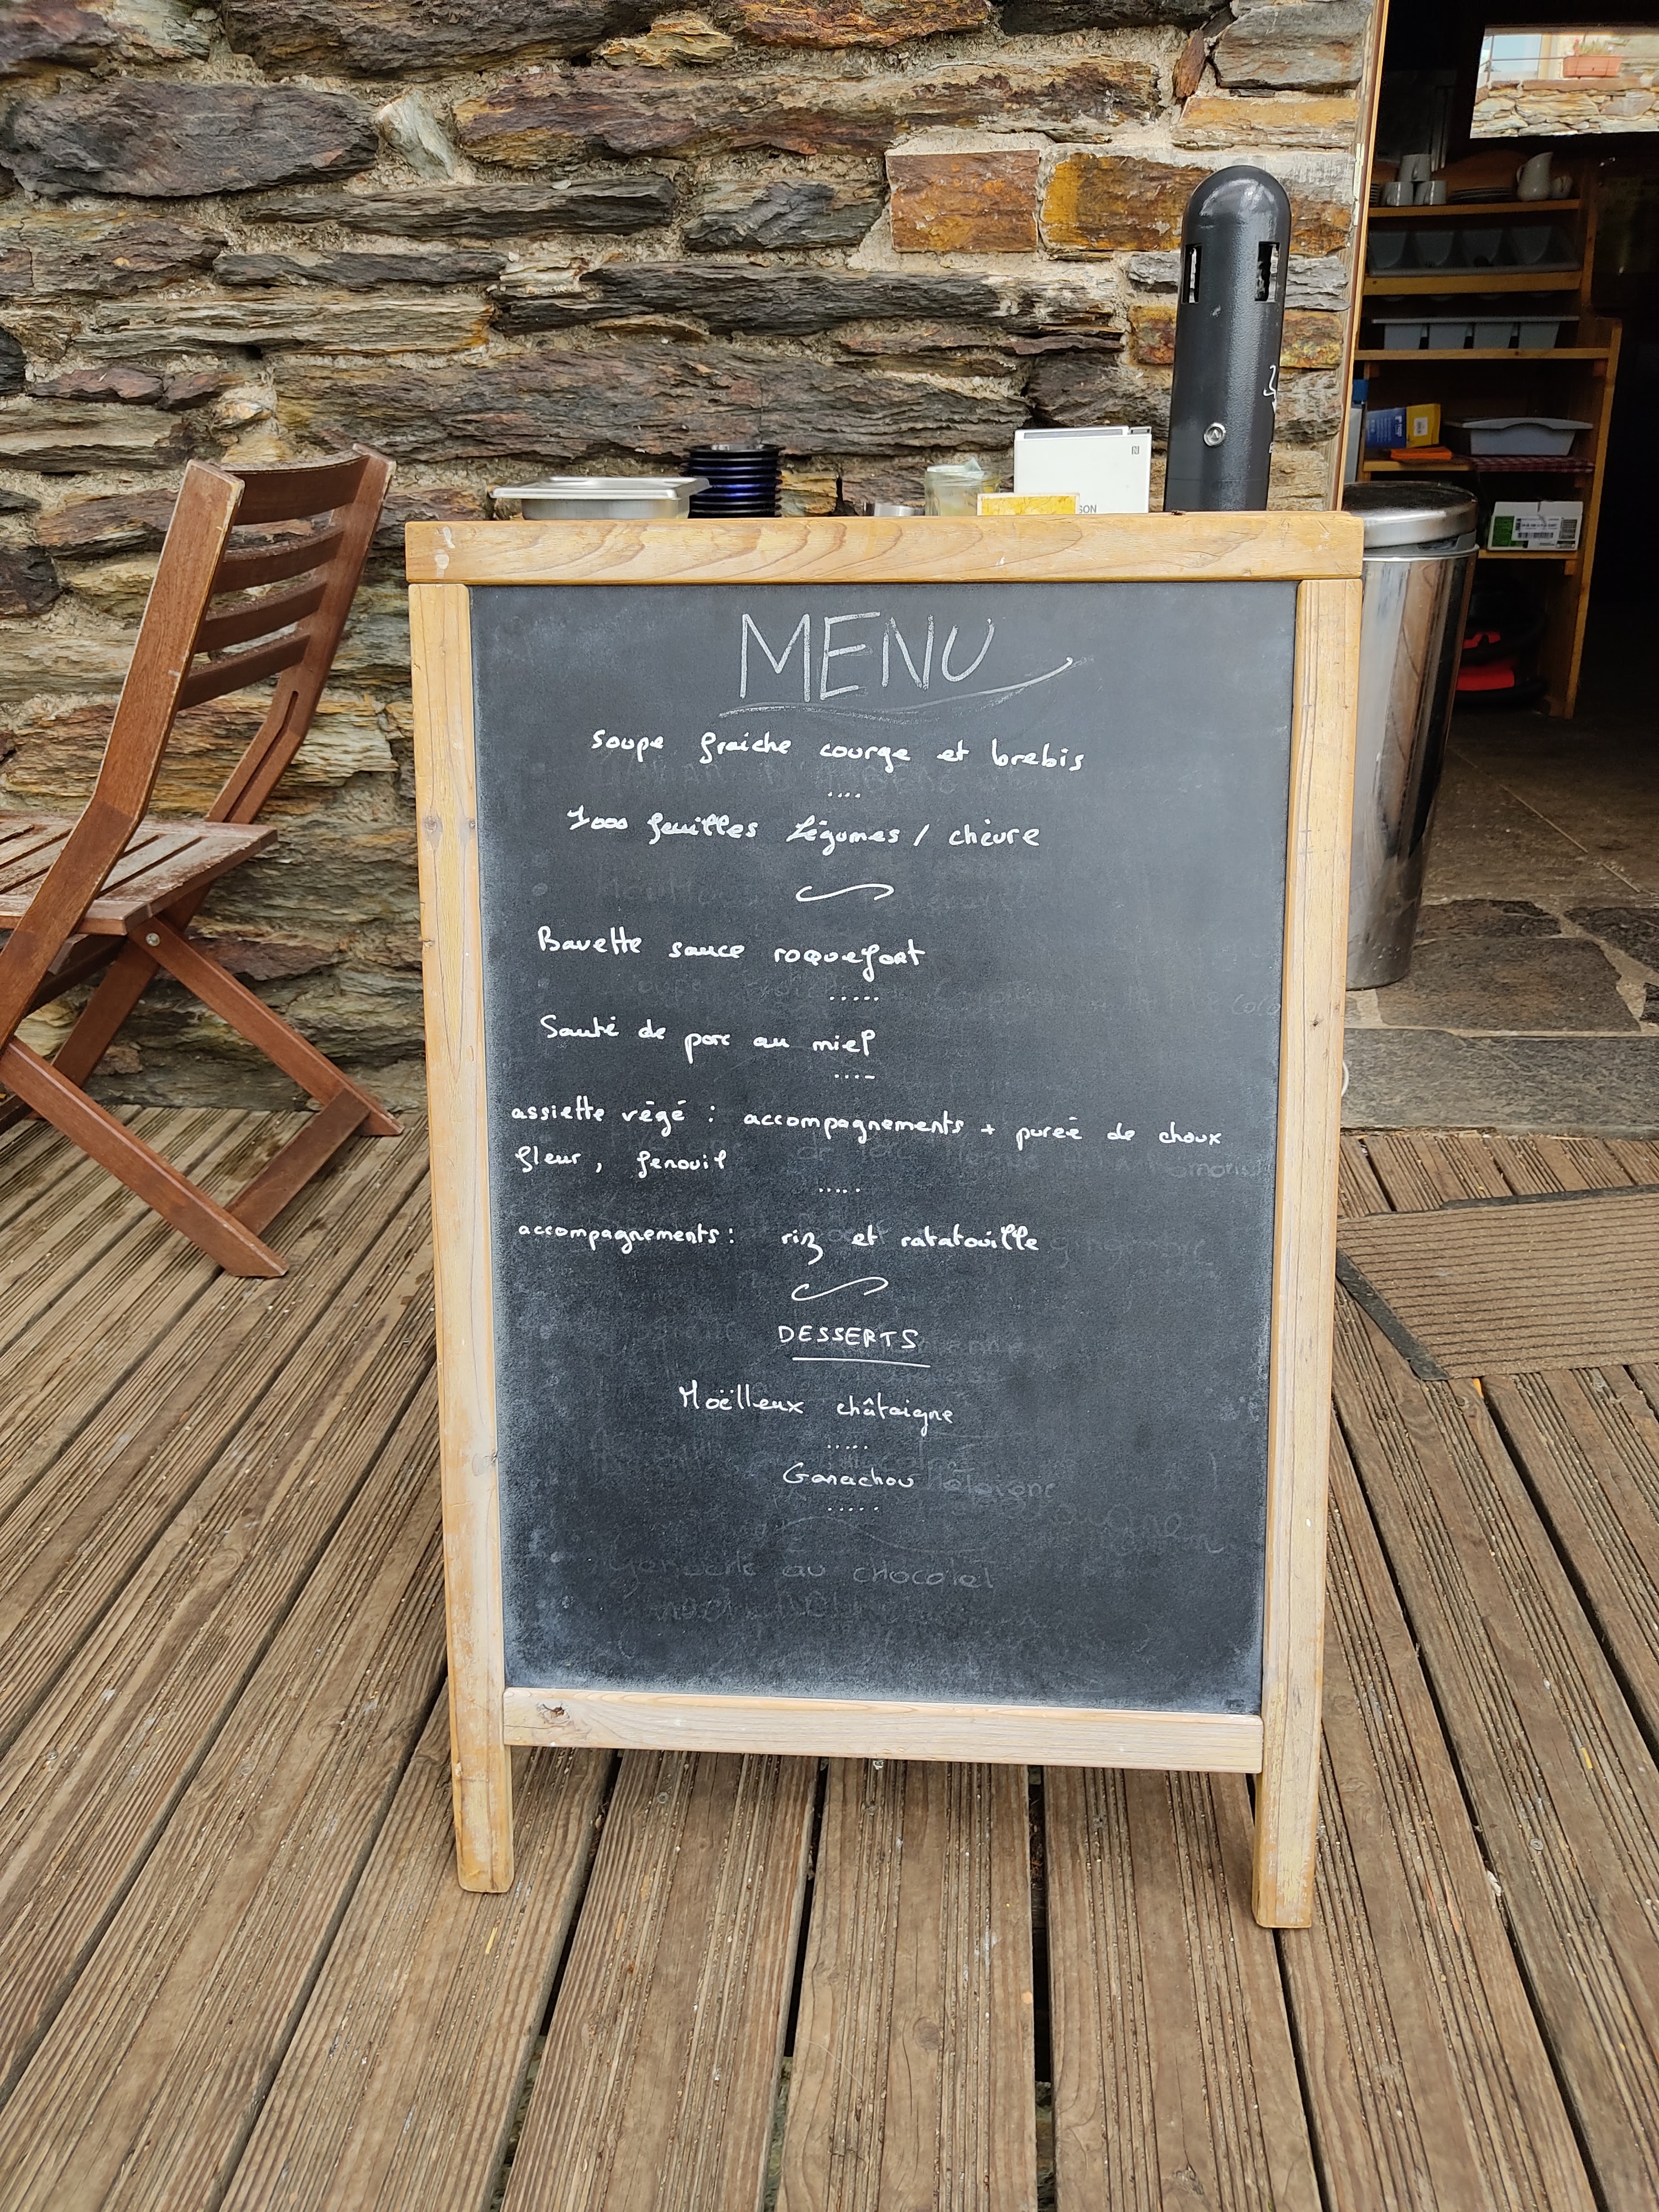 SON
MENU
soupe fraiche courge et brebis
1000 feuilles légumes / chèvre
Bavette sauce roquefort
Sauté de porc au miel
assiette végé : accompagnements + purée de choux
fleur, fenouil
accompagnements : riz et ratatouille
DESSERTS
Moëlleux châtaigne
Ganachou
ganache au chocolat